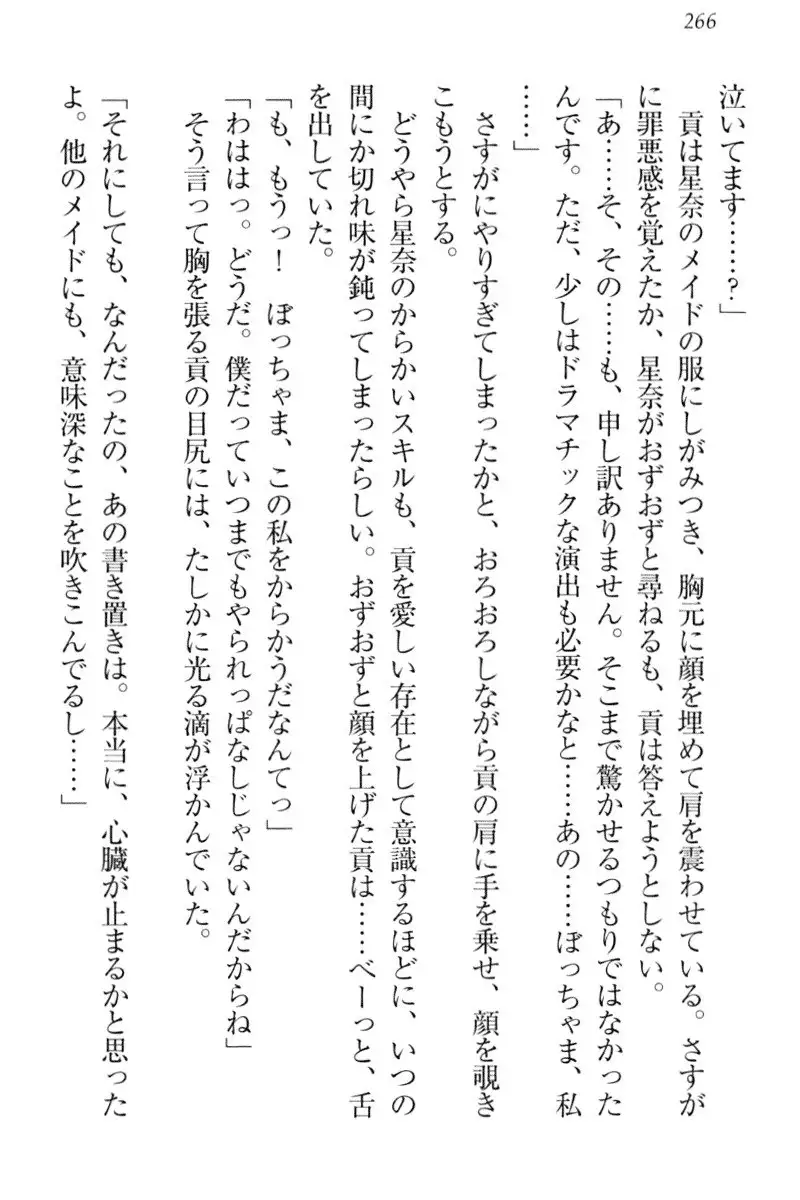 266
泣いてます……？」
　貢は星奈のメイドの服にしがみつき、胸元に顔を埋めて肩を震わせている。さすが
に罪悪感を覚えたか、星奈がおずおずと尋ねるも、貢は答えようとしない。
「あ……そ、その……も、申し訳ありません。そこまで驚かせるつもりではなかった
んです。ただ、少しはドラマチックな演出も必要かなと……あの……ぼっちゃま、私
……」
　さすがにやりすぎてしまったかと、おろおろしながら貢の肩に手を乗せ、顔を覗き
こもうとする。
　どうやら星奈のからかいスキルも、貢を愛しい存在として意識するほどに、いつの
間にか切れ味が鈍ってしまったらしい。おずおずと顔を上げた貢は……べーっと、舌
を出していた。
「も、もうっ！　ぼっちゃま、この私をからかうだなんてっ」
「わははっ。どうだ。僕だっていつまでもやられっぱなしじゃないんだからね」
　そう言って胸を張る貢の目尻には、たしかに光る滴が浮かんでいた。
「それにしても、なんだったの、あの書き置きは。本当に、心臓が止まるかと思った
よ。他のメイドにも、意味深なことを吹きこんでるし……」